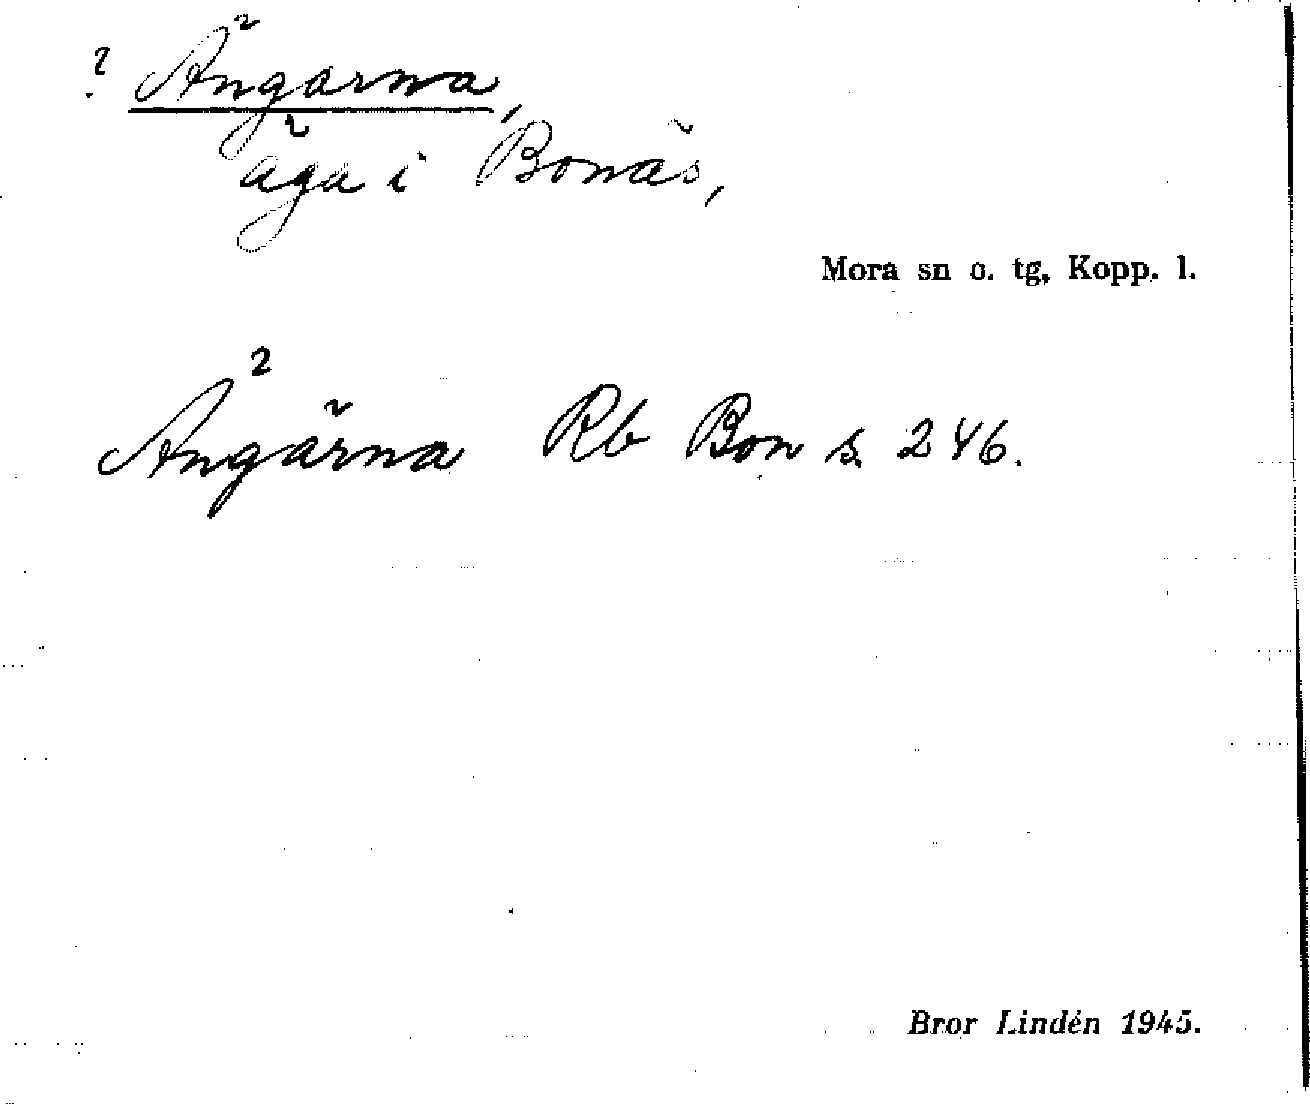 ? Ängarna,
äga i Bonäs,
Mora sn o. tg, Kopp. l.
Ängärna Rb Bon s. 246.
Bror Lindén 1945.